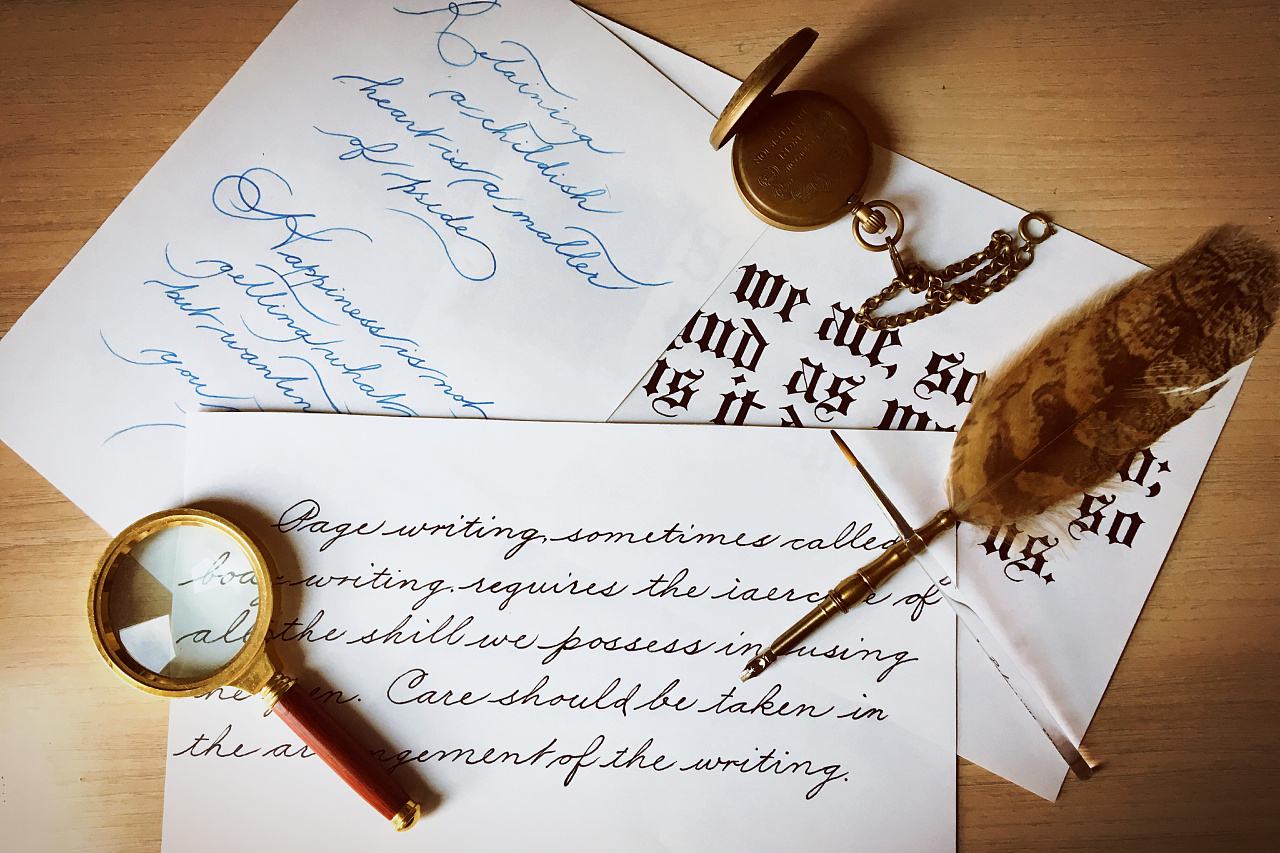 Retaining
a childish
heart is a matter
of pride
Happiness is not
getting what
but wantin
you
we are, so
and as
is it
so
us.
Page writing, sometimes called
writing, requires the of
all the skill we possess in using
the pen. Care should be taken in
the ar ngement of the writing.